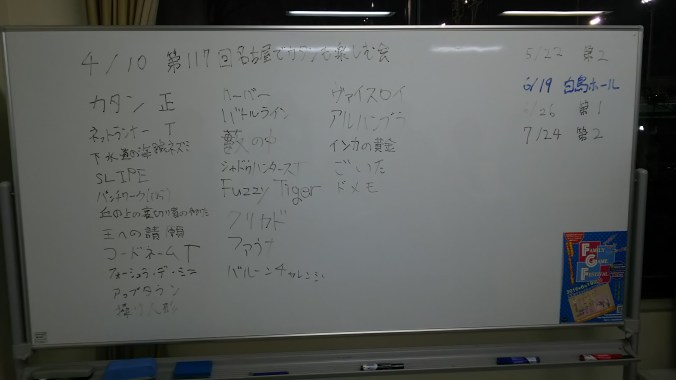 4/10 第117回名古屋でカタンも楽しむ会
カタン 正
ネットランナー T
下水道の海賊ネズミ
SLIPE
パッチワーク
丘の上の裏切り者の
王への請願
コードネーム T
アップタウン
操り人形
ペーパー
バトルライン
藪の中
シャドウハンターズT
Fuzzy Tiger
クリカド
ファウナ
バルーンチャレンジ
ヴァイスロイ
アルハンブラ
インカの黄金
ごいた
ドメモ
5/22 第2
6/19 白鳥ホール
/26 第1
7/24 第2
FAMILY
GAME
FESTIVAL